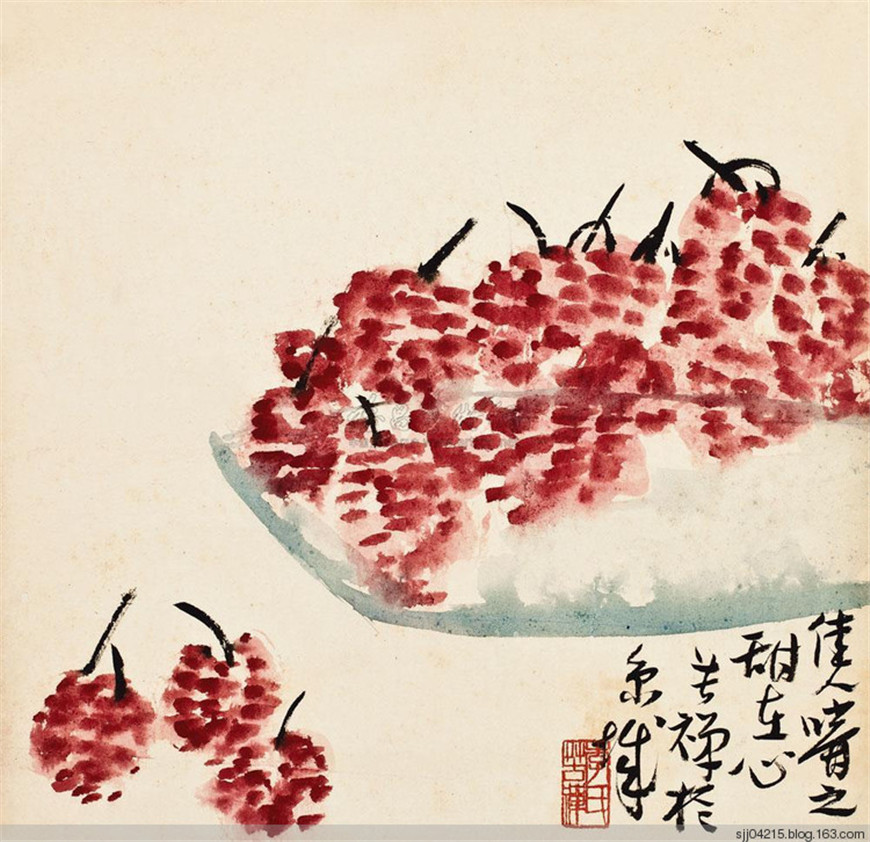 佳人嚼之
甜在心
苦禅於
京城
李氏
苦禅
sjj04215.blog.163.com